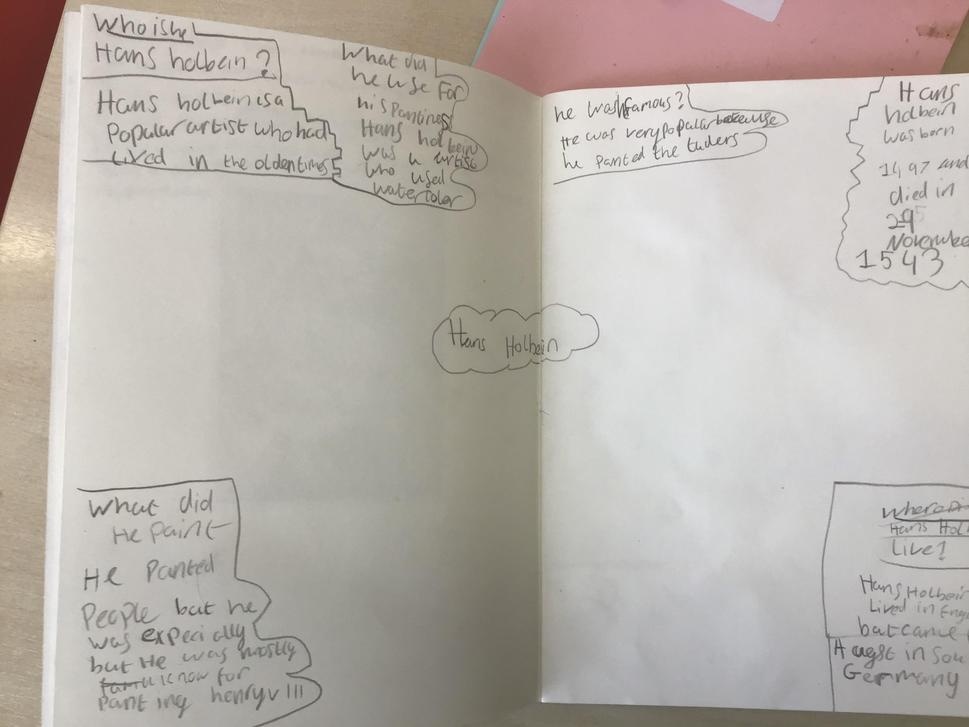 Who is he
Hans holbein?
Hans holbein is a
Popular artist who had
Lived in the olden times
What did
he use for
his Pantings
Hans holbein
was a artist
who used
watercolor
he was famous?
He was very popular because
he panted the tuders
Hans
holbein
was born
1497 and
died in
29
November
1543
Hans Holbein
What did
He Paint
He Panted
People but he
was expecially
but He was mostly
know for
Panting henry VIII
Where Di
Hans Hol
Live?
Hans Holbein
Lived in Eng
but came
Augst in Sou
Germany